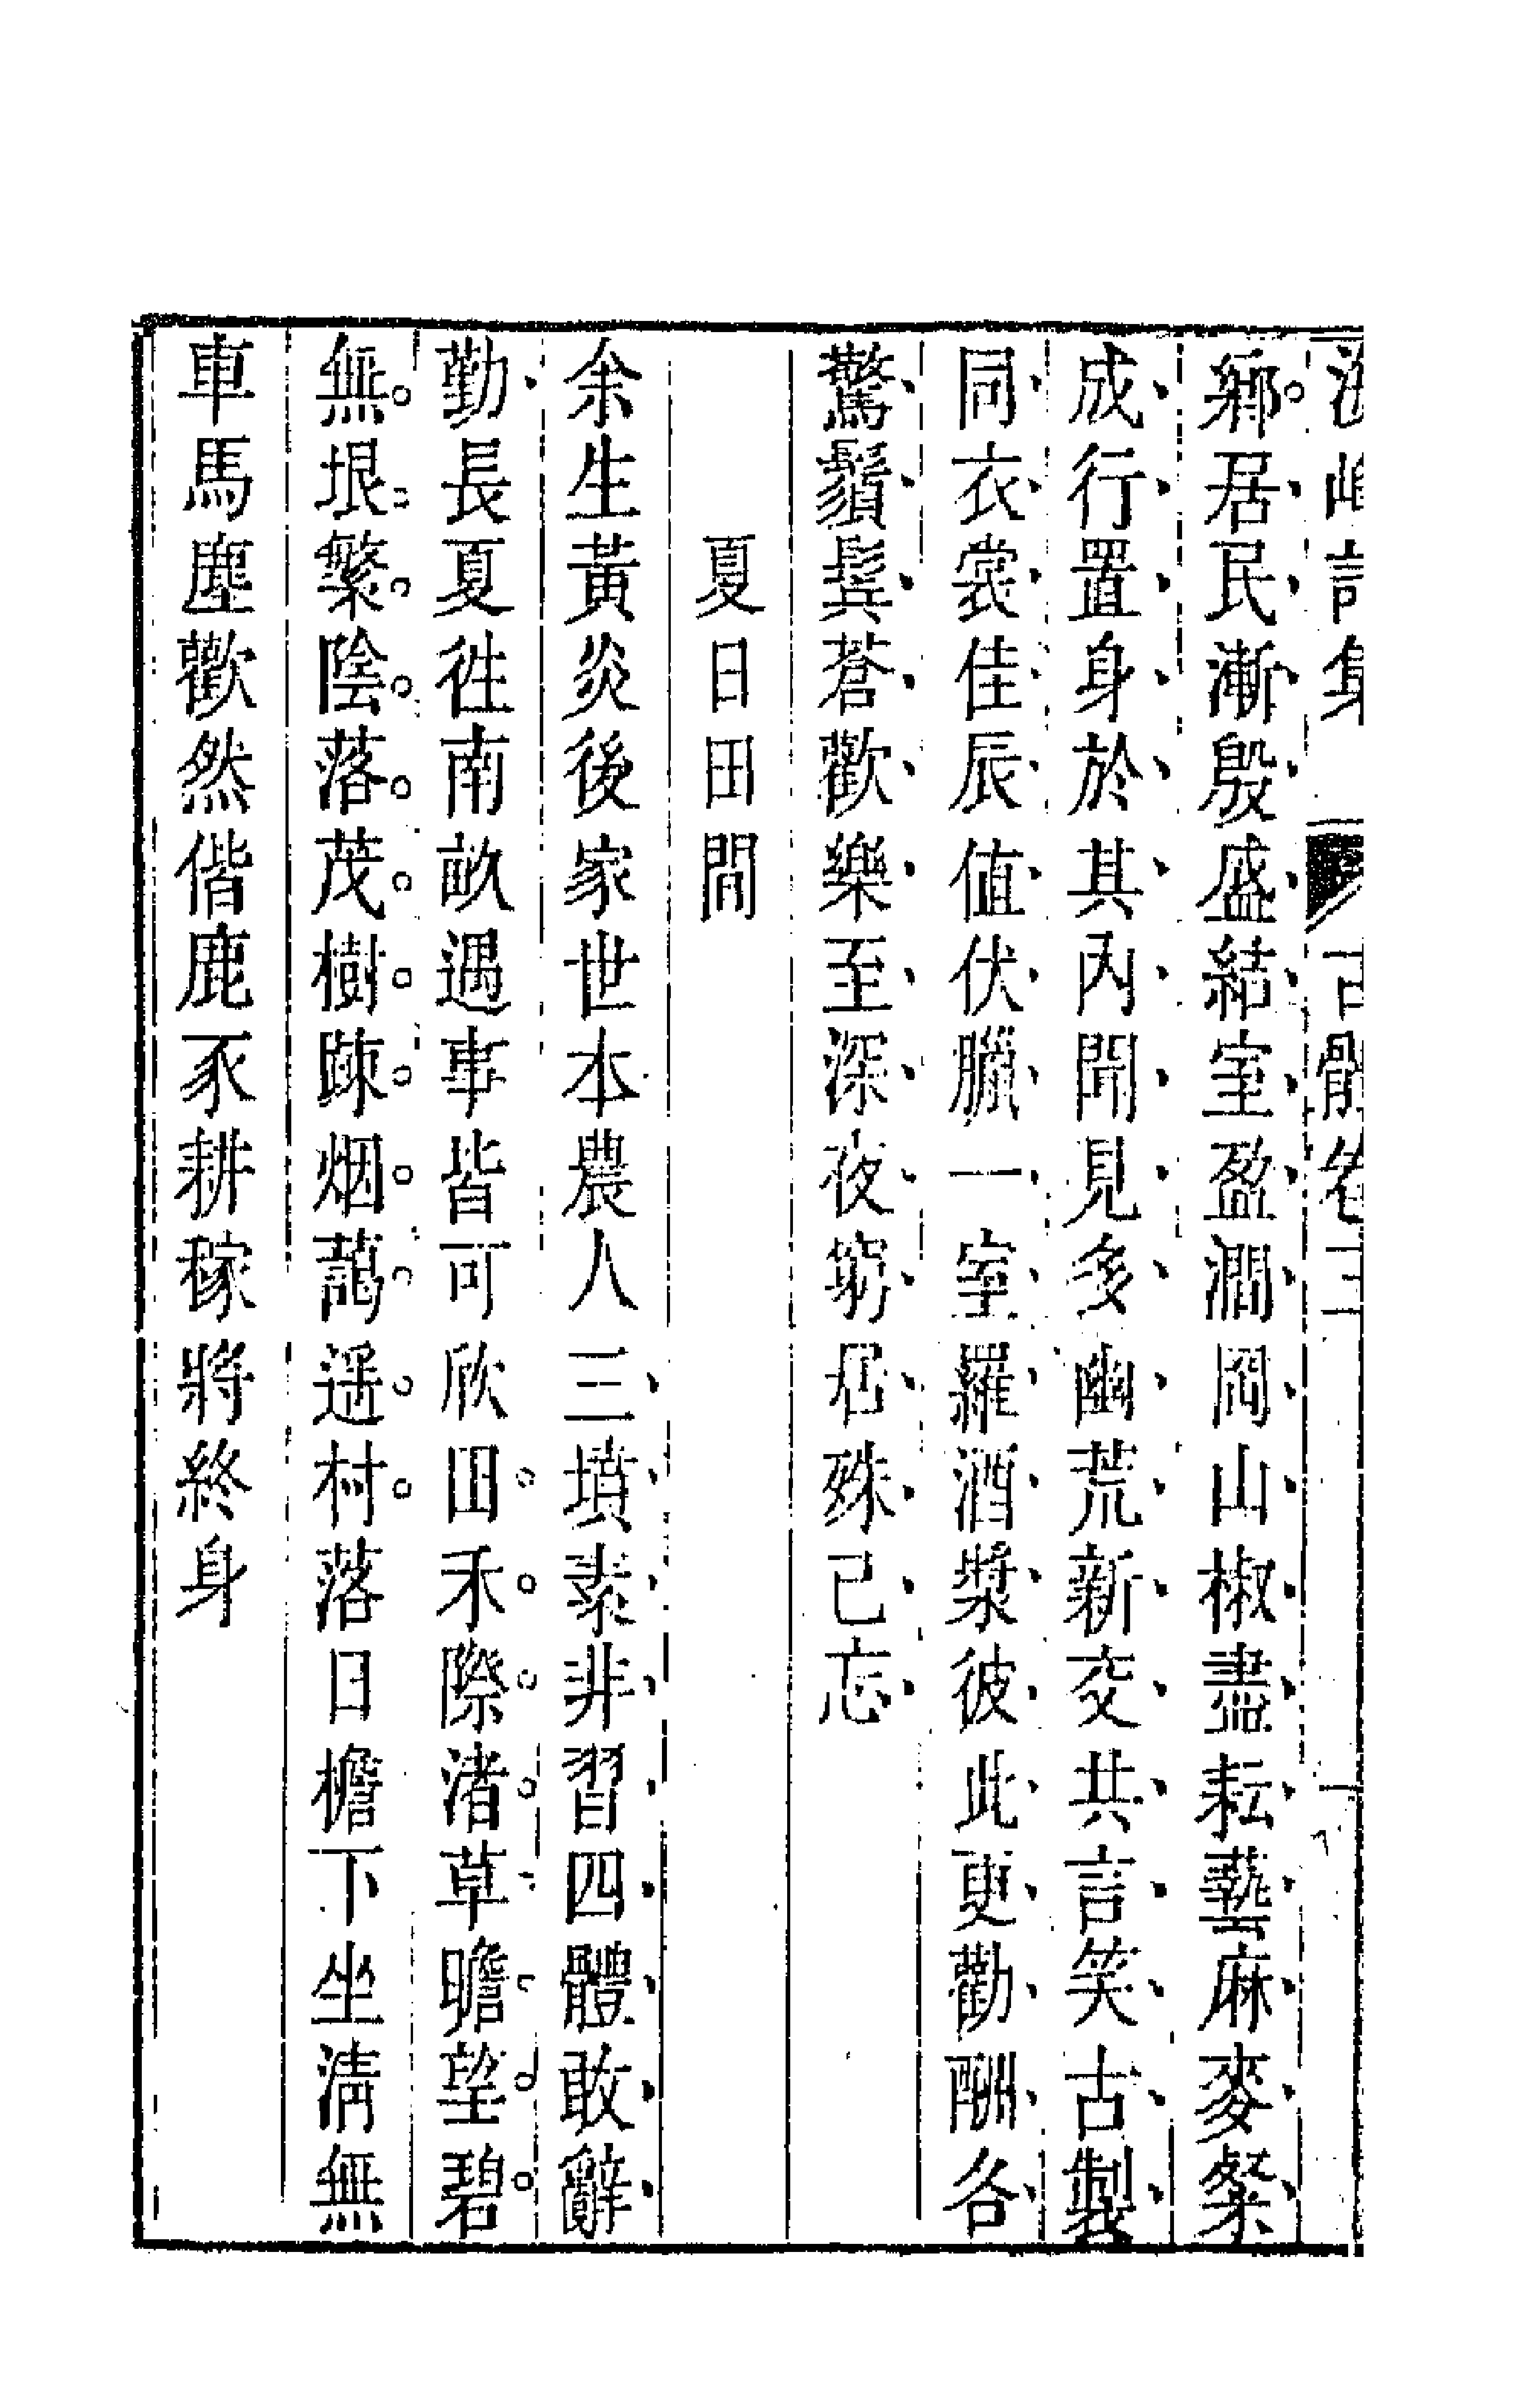 海峰詩集 古體卷三
鄉居民漸殷盛結室盈澗岡山椒盡耘藝麻麥粲
成行置身於其內聞見多幽荒新交共言笑古製
同衣裳佳辰值伏臘一室羅酒漿彼此更勸酬各
驚鬚鬂蒼歡樂至深夜窮居殊己忘
夏日田間
余生黃炎後家世本農人三墳素非習四體敢辭
勤長夏徃南畝遇事皆可欣田禾際渚草瞻望碧
無垠繁陰落茂樹踈烟藹遥村落日檐下坐淸無
車馬塵歡然偕鹿豕耕稼將終身